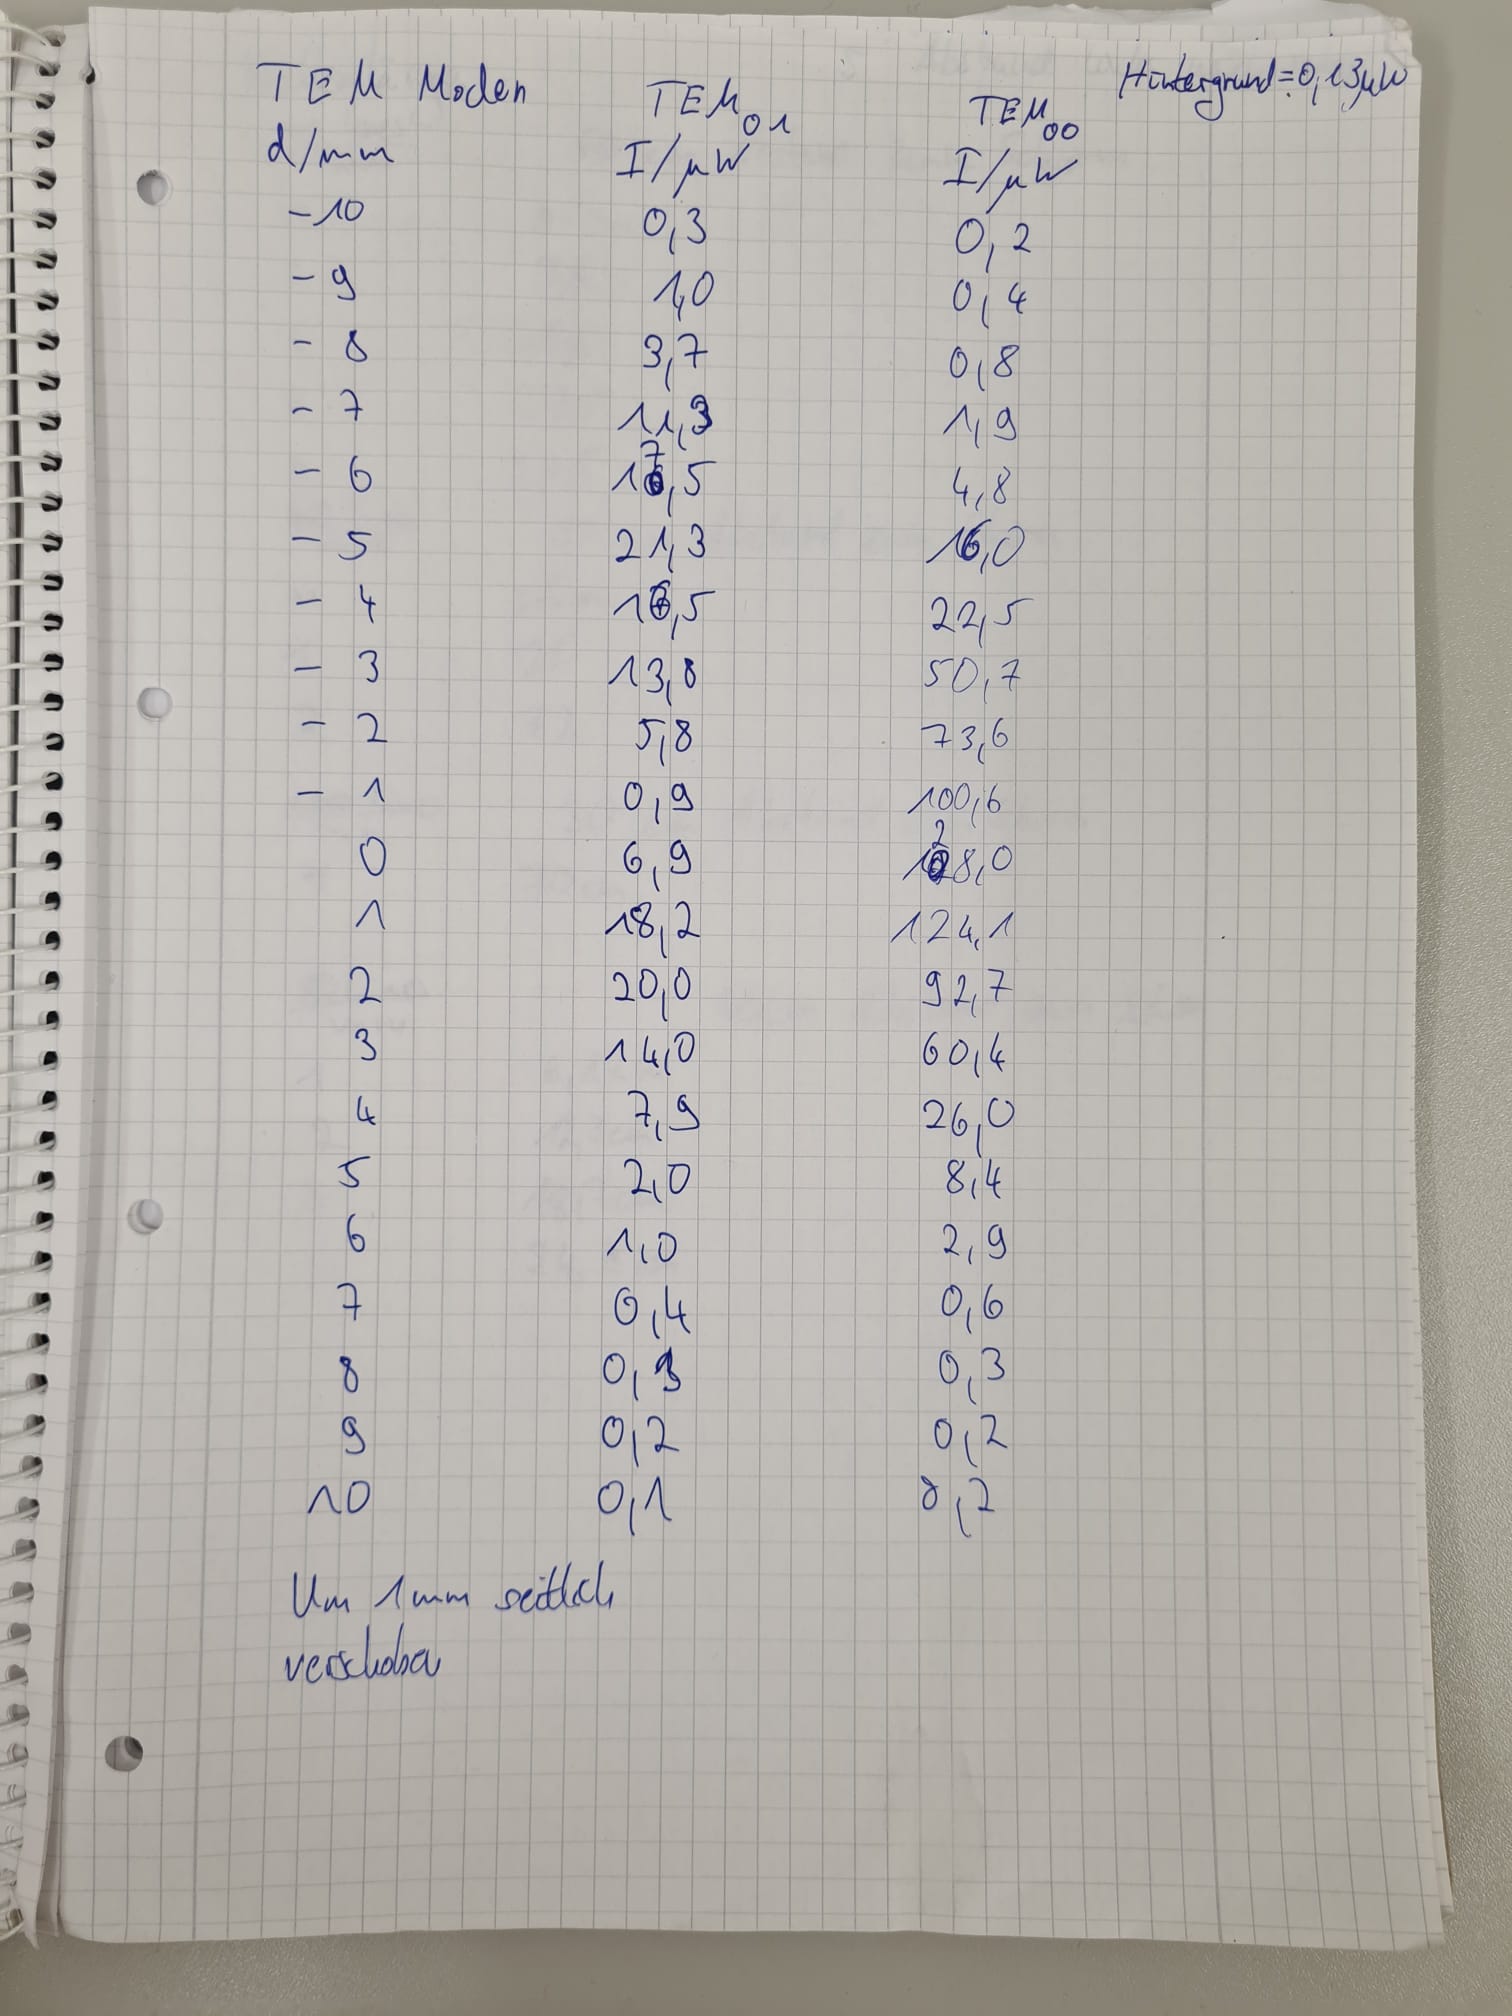 Hintergrund = 0,13µW
TEM Moden TEM01 TEM00
d/mm I/µW I/µW
-10 0,3 0,2
-9 1,0 0,4
-8 3,7 0,8
-7 11,3 1,9
-6 17,5 4,8
-5 21,3 16,0
-4 16,5 22,5
-3 13,8 50,7
-2 5,8 73,6
-1 0,9 100,6
0 6,9 128,0
1 18,2 124,1
2 20,0 92,7
3 14,0 60,4
4 7,9 26,0
5 2,0 8,4
6 1,0 2,9
7 0,4 0,6
8 0,3 0,3
9 0,2 0,2
10 0,1 0,2
Um 1mm seitlich
verschoben